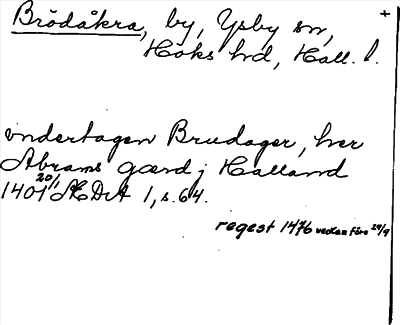 +
Brödåkra, by, Ysby sn,
Höks hd, Hall. l.
vndertagen Brudager, hver
Abrams gærd j Halland
1401 20/1 ÆDA 1, s. 64.
regest 1476 vedan före 29/9